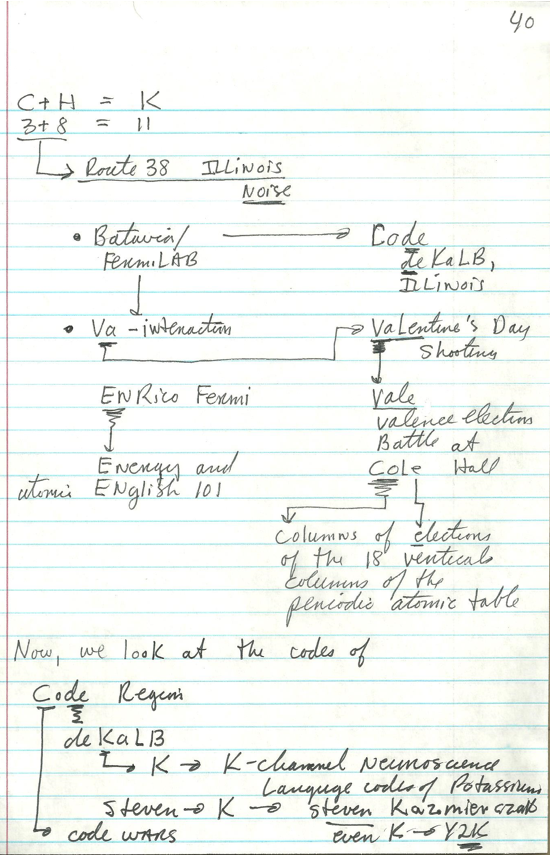 40
C+H = K
3+8 = 11
Route 38 ILLinois
Noise
• Batavia/ Code
FermiLAB deKaLB,
ILLinois
• Va-interaction Valentine's Day
Shooting
ENRico Fermi Vale
valence electron
Battle at
Energy and COLe Hall
atomic ENglish 101
columns of elections
of the 18 verticals
columns of the
periodic atomic table
Now, we look at the codes of
Code Region
deKaLB
K → K-channel Neuroscience
Languge codes of Potassium
Steven → K → Steven Kazmierczak
code WARS even K → Y2K